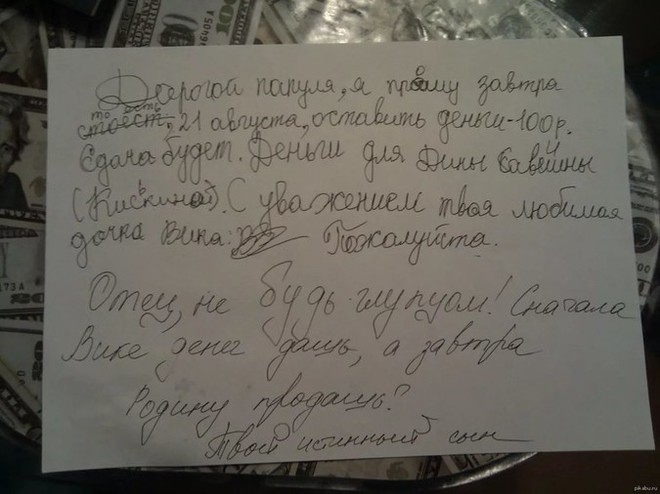 Дорогой папуля, я прошу завтра
то есть
стоест, 21 августа, оставить деньги-100р.
Сдача будет. Деньги для Дины Савейны
(Кискиной). С уважением твоя любимая
дочка Вика: Пожалуйста.
Отец, не будь глупцом! Сначала
Вике денег дашь, а завтра
Родину продашь?
Твой истинный сын
pikabu.ru